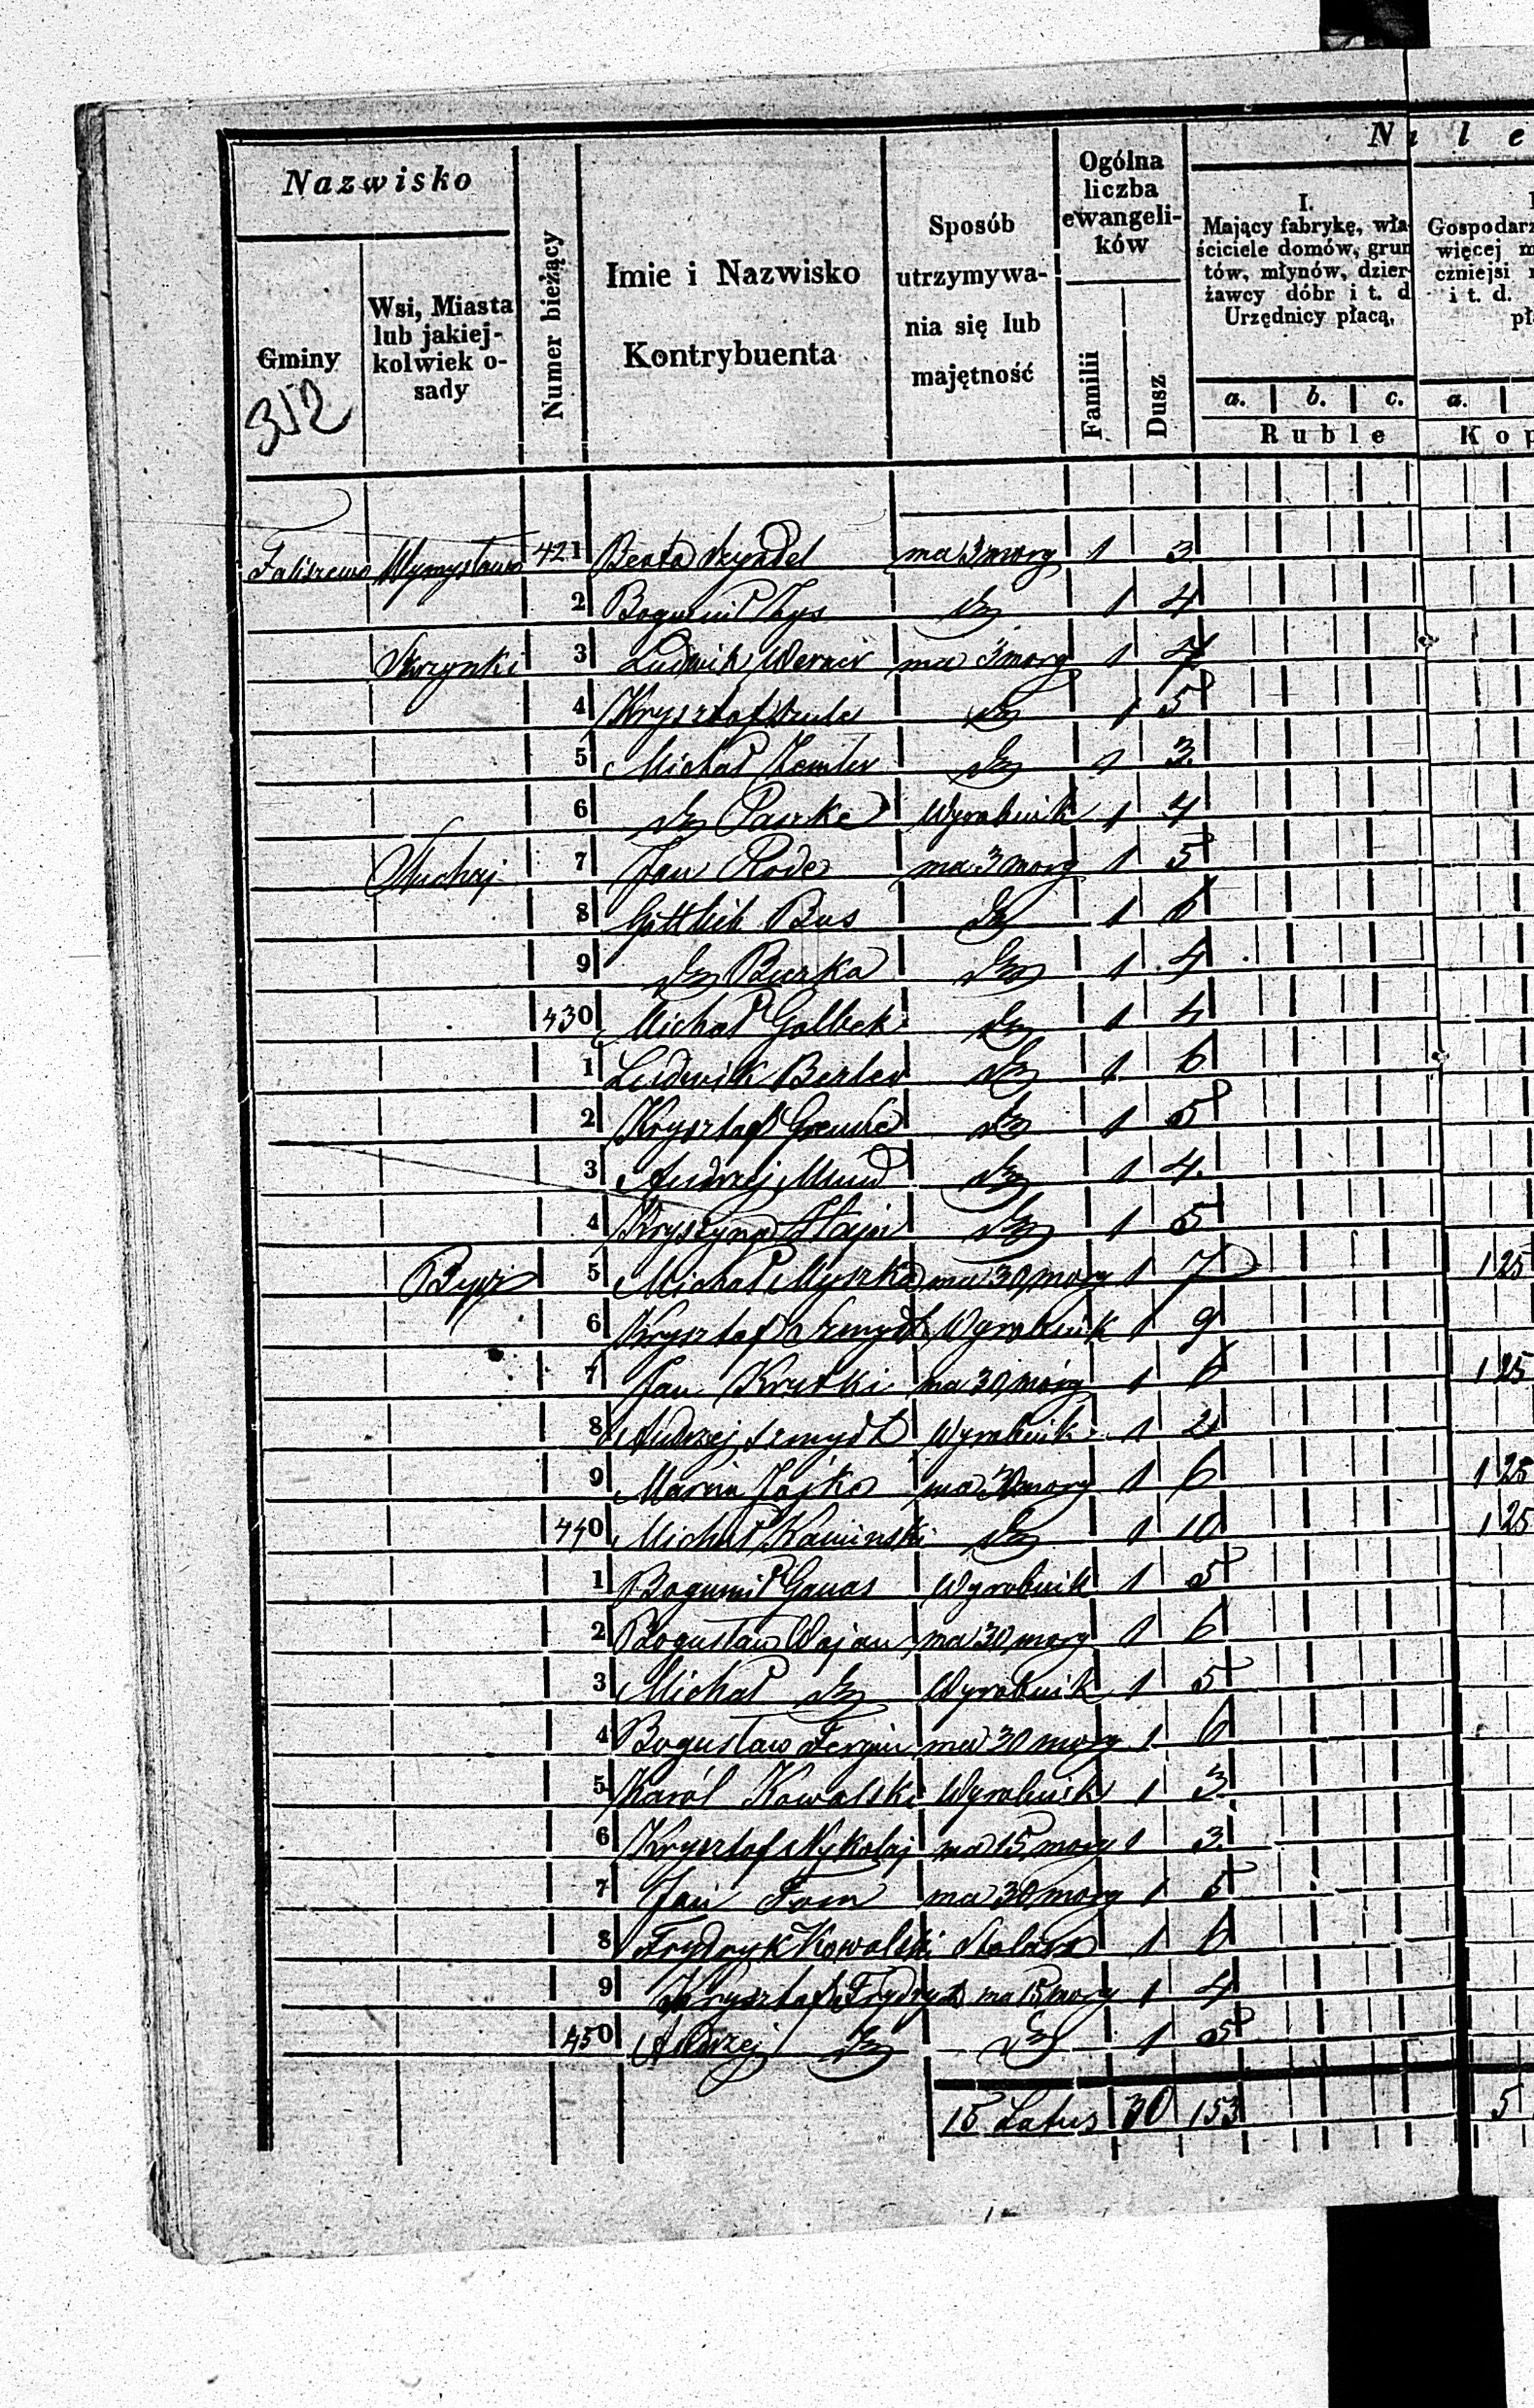 Nazwisko
Gminy
Wsi, Miasta lub jakiej-kolwiek o-sady
Numer bieżący
Imie i Nazwisko Kontrybuenta
Sposób utrzymywa-nia się lub majętność
Ogólna liczba ewangeli-ków
Familii
Dusz
N a l e
I.
Mający fabrykę, wła-
ściciele domów, grun
tów, młynów, dzier-
żawcy dóbr i t. d
Urzędnicy płacą,
a. b. c.
Ruble
Gospodarz
więcej m
czniejsi
i t. d.
pł
a.
Kop
352
Faliszewo Wymysłowo 421 Beata Szyndel ma 3 morg 1 3
2 Bogumił Zys dto 1 4
Skrzynki 3 Ludwik Werner ma 3 morg 1 7
4 Krysztof Szulc dto 1 5
5 Michał dto 1 3
6 dto Paszke Wyrobnik 1 4
7 Jan Rode ma 3 morg 1 5
8 Gottlieb Bus dto 1 6
9 dto Burka dto 1 4
430 Michał Golbek dto 1 4
1 Ludwik Berler dto 1 6
2 Krysztof dto 1 5
3 Andrzej Mund dto 1 4
4 Krystyna dto 1 5
5 Michał Myszka ma 30 morg 1 7 1 25
6 Krysztof Szmydt Wyrobnik 1 9
7 Jan Krutki ma 30 morg 1 6 1 25
8 Andrzej Szmydt Wyrobnik 1 2
9 Marcin Jajko ma 30 morg 1 6 1 25
440 Michał Kaminski dto 1 10 1 25
1 Bogumił Ganas Wyrobnik 1 5
2 Bogusław Wajan ma 30 morg 1 6
3 Michał dto Wyrobnik 1 5
4 Bogusław Fergin ma 30 morg 1 6
5 Karól Kowalski Wyrobnik 1 3
6 Krysztof Nykolaj ma 15 morg 1 3
7 Jan Tom ma 30 morg 1 5
8 Frydryk Kowalski Stolarz 1 6
9 Krysztof Frydryk ma 15 morg 1 4
450 Andrzej dto dto 1 5
15 Latus 30 153 5